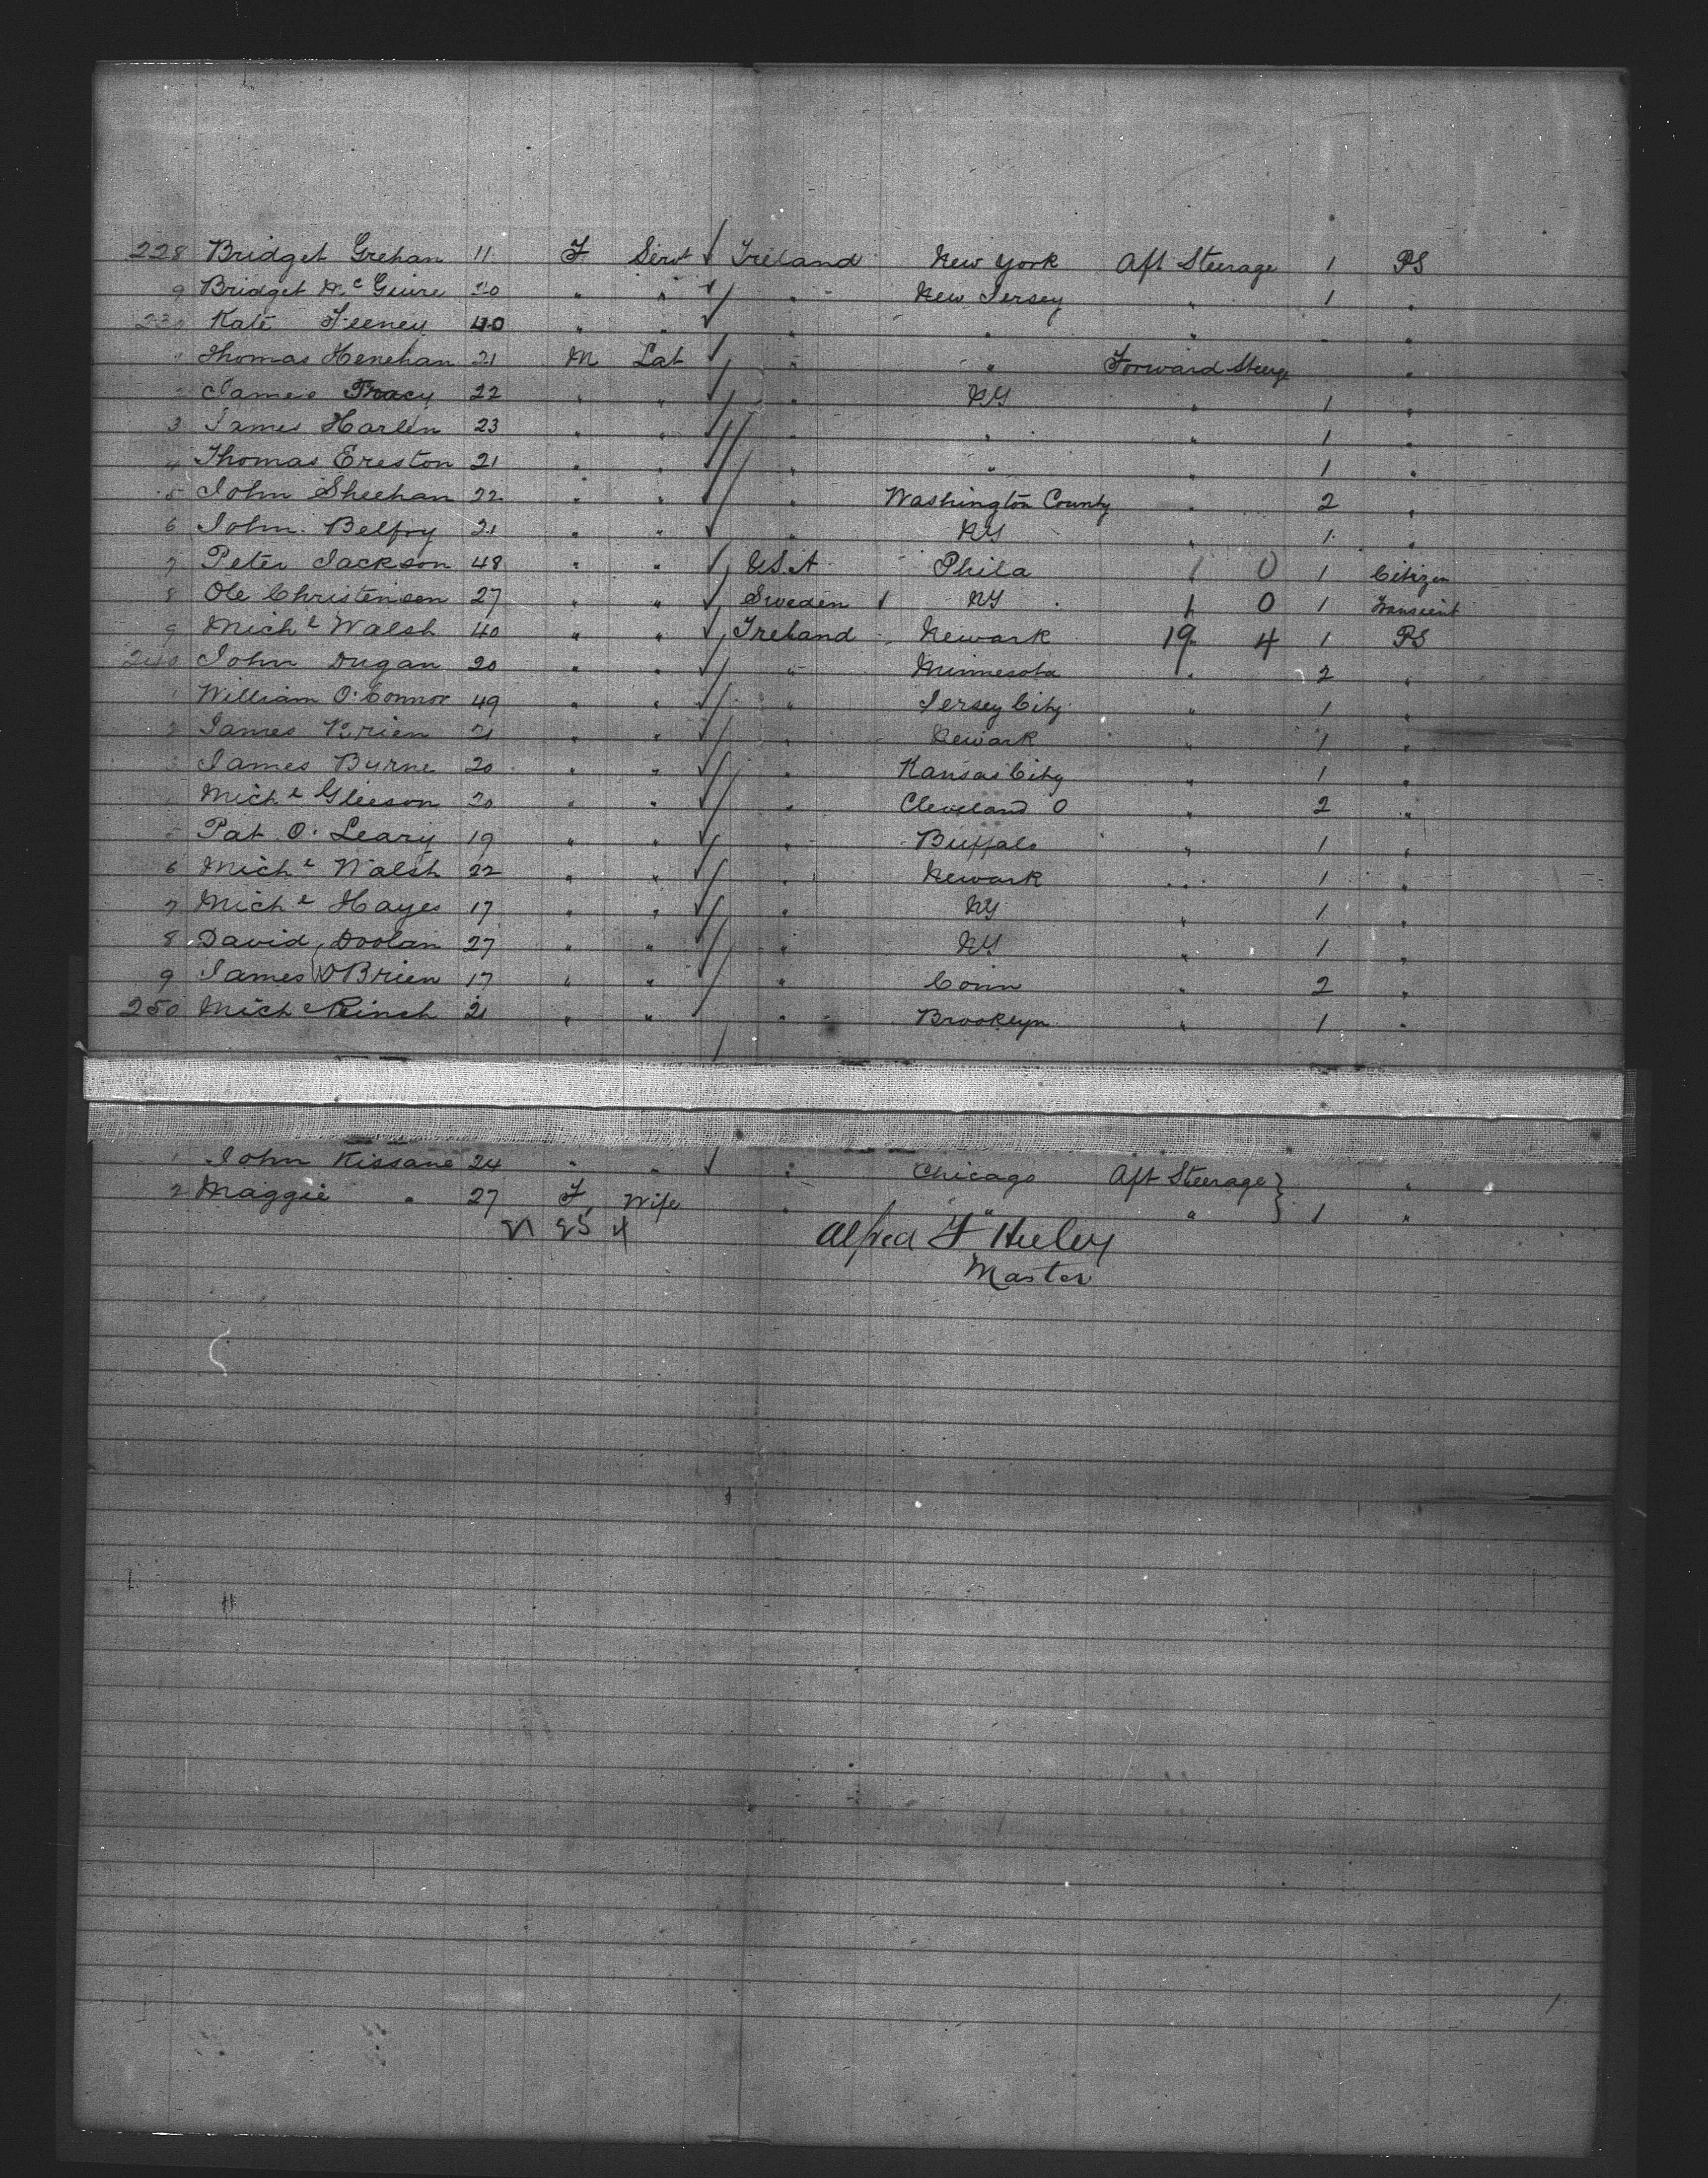 228 Bridget Grehan 11 F Servt √ Ireland New York Aft Steerage 1 PS
9 Bridget McGuire 20 " " √ " New Jersey " 1 "
230 Kate Feeney 40 " " √ " " " "
Thomas Henehan 21 M Lab √ " " Forward Steerge "
2 James Tracy 22 " " √ " NY " 1 "
3 James Harlin 23 " " √ " " " 1 "
4 Thomas Ereston 21 " " √ " " 1 "
5 John Sheehan 22 " " √ " Washington County " 2 "
6 John Belfry 21 " " √ " NY " 1 "
7 Peter Jackson 48 " " √ U.S.A Phila 1 0 1 Citizen
8 Ole Christensen 27 " " √ Sweden 1 NY 1 0 1 Transient
9 Michl Walsh 40 " " √ Ireland Newark 19 4 1 PS
240 John Dugan 20 " " √ " Minnesota " 2 "
1 William O'Connor 49 " " √ " Jersey City " 1 "
2 James Brien 21 " " √ " Newark " 1 "
3 James Byrne 20 " " √ " Kansas City " 1 "
Michl Gleeson 20 " " √ " Cleveland O " 2 "
5 Pat O'Leary 19 " " √ " Buffalo " 1 "
6 Michl Walsh 22 " " √ " Newark " 1 "
7 Michl Hayes 17 " " √ " NY " 1 "
8 David Doolan 27 " " √ " NY " 1 "
9 James O'Brien 17 " " √ " Conn " 2 "
250 Michl 21 " " " Brooklyn " 1 "
1 John Kissane 24 " " √ " Chicago Aft Steerage "
2 Maggie " 27 F Wife " " " 1 "
Alfred F Heeley
Master